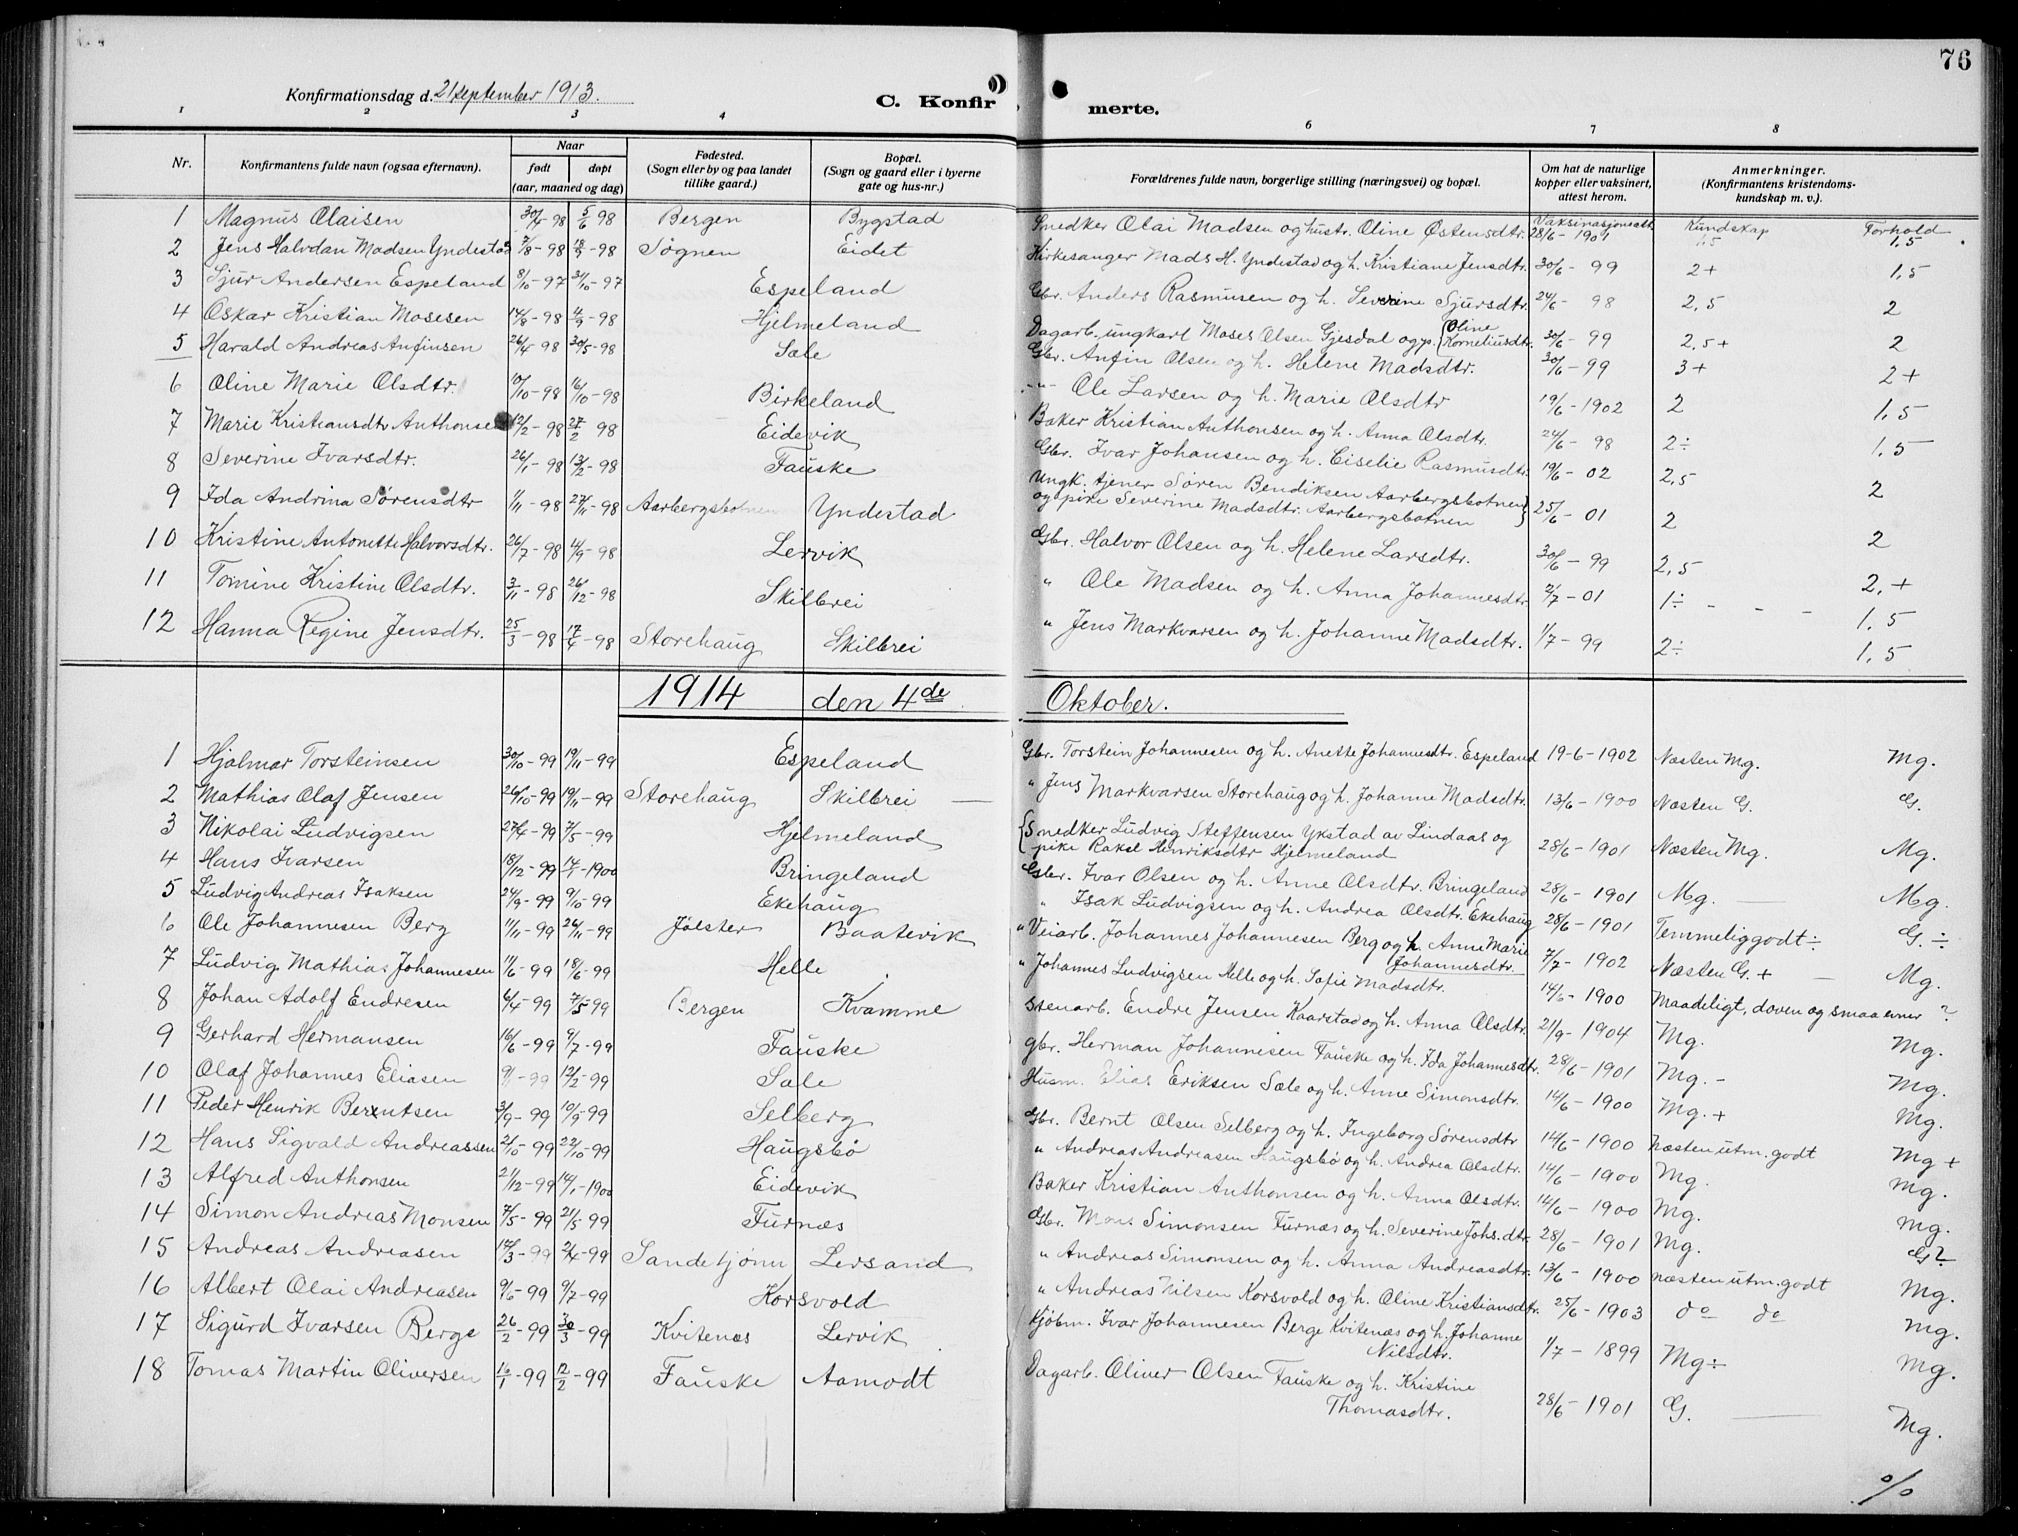 76
Konfirmationsdag d. 21 september 1913.
C. Konfir merte.
1 2 3 4 6 7 8
Nr.
Konfirmantens fulde navn (ogsaa efternavn).
Naar
født døpt
(aar, maaned og dag)
Fødested.
(Sogn eller by og paa landet
tillike gaard.)
Bopæl.
(Sogn og gaard eller i byerne
gate og hus-nr.)
Forældrenes fulde navn, borgerlige stilling (næringsvei) og bopæl.
Om hat de naturlige
kopper eller vaksinert,
attest herom.
Anmerkninger.
(Konfirmantens kristendoms-
kundskap m. v.).
Vaksinasjonsatt. Kundskap Forhold
1 Magnus Olaisen 30/4-98 5/6 98 Bergen Bygstad Snedker Olai Madsen og hustr. Oline Østensdtr. 28/6-1901 1,5 1,5
2 Jens Halvdan Madsen Yndestad 7/8-98 18/9-98 Søgnen Eidet Kirkesanger Mads H. Yndestad og h. Kristiane Jensdtr. 30/6-99 2+ 1,5
3 Sjur Andersen Espeland 8/10-97 31/10-97 Espeland Gbr. Anders Rasmusen og h. Severine Sjursdtr. 24/6-98 2,5 2
4 Oskar Kristian Mosesen 14/8-98 4/9-98 Hjelmeland Dagarb. ungkarl Moses Olsen Gjesdal og p. {Oline Korneliusdtr. 30/6-99 2,5+ 2
5 Harald Andreas Anfinsen 26/4 98 30/5-98 Sæle Gbr. Anfin Olsen og h. Helene Madsdtr. 30/6-99 3+ 2+
6 Oline Marie Olsdtr. 10/10-98 16/10-98 Birkeland -"- Ole Larsen og h. Marie Olsdtr 19/6-1902 2 1,5
7 Marie Kristiansdtr Anthonsen 12/2-98 27/2 98 Eidevik Baker Kristian Anthonsen og h. Anna Olsdtr. 24/6-98 2÷ 1,5
8 Severine Ivarsdtr. 26/1-98 13/2-98 Fauske Gbr. Ivar Johansen og h. Eiselie Rasmusdtr. 19/6-02 2,5 2
9 Ida Andrina Sørensdtr 1/11-98 27/11-98 Aarbergsbotnen Yndestad Ungk. tjener Søren Bendiksen Aarbergsbotnen} og pike Severine Madsdtr. Aarbergsbotnen 25/6-01 2 2
10 Kristine Antonette Halvorsdtr. 26/7-98 4/9-98 Lervik Gbr. Halvor Olsen og h. Helene Larsdtr. 30/6-99 2,5 2,+
11 Tomine Kristine Olsdtr. 3/11-98 26/12-98 Skilbrei " Ole Madsen og h. Anna Johannesdtr. 2/7-01 1÷ - - - 1,5
12 Hanna Regine Jensdtr. 25/3-98 17/4-98 Storehaug Skilbrei " Jens Markvarsen og h. Johanne Madsdtr. 1/7-99 2÷ 1,5
1914 den 4de Oktober.
1 Hjalmar Torsteinsen 30/10-99 19/11-99 Espeland Gbr. Torstein Johannesen og h. Anette Johannesdtr. Espeland 19-6-1902 Næsten Mg. Mg.
2 Mathias Olaf Jensen 26/10-99 19/11-99 Storehaug Skilbrei " Jens Markvarsen Storehaug og h. Johanne Madsdtr. 13/6-1900 Næsten G. G.
3 Nikolai Ludvigsen 27/4-99 7/5-99 Hjelmeland {Snedker Ludvig Steffensen Ykstad av Lindaas og pike Rakel Henriksdtr Hjelmeland 28/6-1901 Næsten Mg. Mg.
4 Hans Ivarsen 18/12-99 14/1-1900 Bringeland Gbr. Ivar Olsen og h. Anne Olsdtr. Bringeland 28/6-1901 Mg. Mg.
5 Ludvig Andreas Isaksen 24/9-99 9/10-99 Ekehaug " Isak Ludvigsen og h. Andrea Olsdtr. Ekehaug 28/6-1901 Temmelig godt÷ G.÷
6 Ole Johannesen Berg 11/11-99 26/11-99 Jølster Baatevik " Veiarb. Johannes Johannesen Berg og h. Anne Marie Johannesdtr. 7/7-1902 Næsten G.+ Mg.
7 Ludvig Mathias Johannesen 11/6-99 18/6-99 Helle " Johannes Ludvigsen Helle og h. Sofie Madsdtr. 14/6-1900 Maadeligt, doven og smaa evner ?
8 Johan Adolf Endresen 6/4-99 7/5-99 Bergen Kvamme Stenarb. Endre Jensen Kaarstad og h. Anna Olsdtr. 21/9-1904 Mg. Mg.
9 Gerhard Hermansen 16/6-99 9/7-99 Fauske gbr. Herman Johannesen Fauske og h. Ida Johannesdtr. 28/6-1901 Mg.- Mg.
10 Olaf Johannes Eliasen 9/1-99 12/2-99 Sæle Husm. Elias Eriksen Sæle og h. Anne Simonsdtr. 14/6-1900 Mg.+ Mg.
11 Peder Henrik Berntsen 3/9-99 10/9-99 Selberg Gbr. Bernt Olsen Selberg og h. Ingeborg Sørensdtr 14/6-1900 Næsten utm. godt Mg+
12 Hans Sigvald Andreassen 2/10-99 22/10-99 Haugsbø " Andreas Andreasen Haugsbø og h. Andrea Olsdtr. 14/6-1900 Mg. Mg.
13 Alfred Anthonsen 21/12-99 14/1-1900 Eidevik Baker Kristian Anthonsen og h. Anna Olsdtr. 14/6-1900 Mg. Mg.
14 Simon Andreas Monsen 7/5-99 21/5-99 Furnæs Gbr. Mons Simonsen Furnæs og h. Severine Johs.dtr. 28/6-1901 Mg. G?
15 Andreas Andreasen 12/3-99 2/4-99 Sandetjønn Lersand " Andreas Simonsen og h. Anna Andreasdtr. 13/6-1900 næsten utm. godt Mg.
16 Albert Olai Andreasen 9/6-99 9/7-99 Korsvold " Andreas Nilsen Korsvold og h. Oline Kristiansdtr. 25/6-1903 do do Mg.
17 Sigurd Ivarsen Berge 26/2-99 30/3-99 Kvitenæs Lervik Kjøbm. Ivar Johannesen Berge Kvitenæs og h. Johanne Nilsdtr. 1/7-1899 Mg÷ Mg.
18 Tomas Martin Oliversen 16/1-99 12/2-99 Fauske Aamodt Dagarb. Oliver Olsen Fauske og h. Kristine Thomasdtr. 28/6-1901 G. Mg.
%